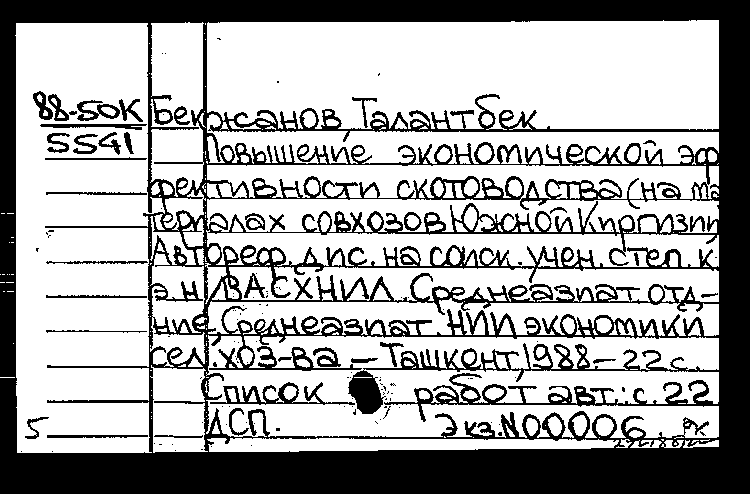 88-50К Бекжанов, Талантбек.
5541 Повышение экономической эф
фективности скотоводства (на ма
териалах совхозов Южной Киргизии
Автореф. дис. на соиск. учен. степ. к.
э.н/ВАСХНИЛ. Среднеазиат. отд-
ние, Среднеазиат. НИИ экономики
сел. хоз-ва. – Ташкент, 1988. – 22 с.
Список работ авт.: с. 22
5 ДСП. Экз. N 00006.